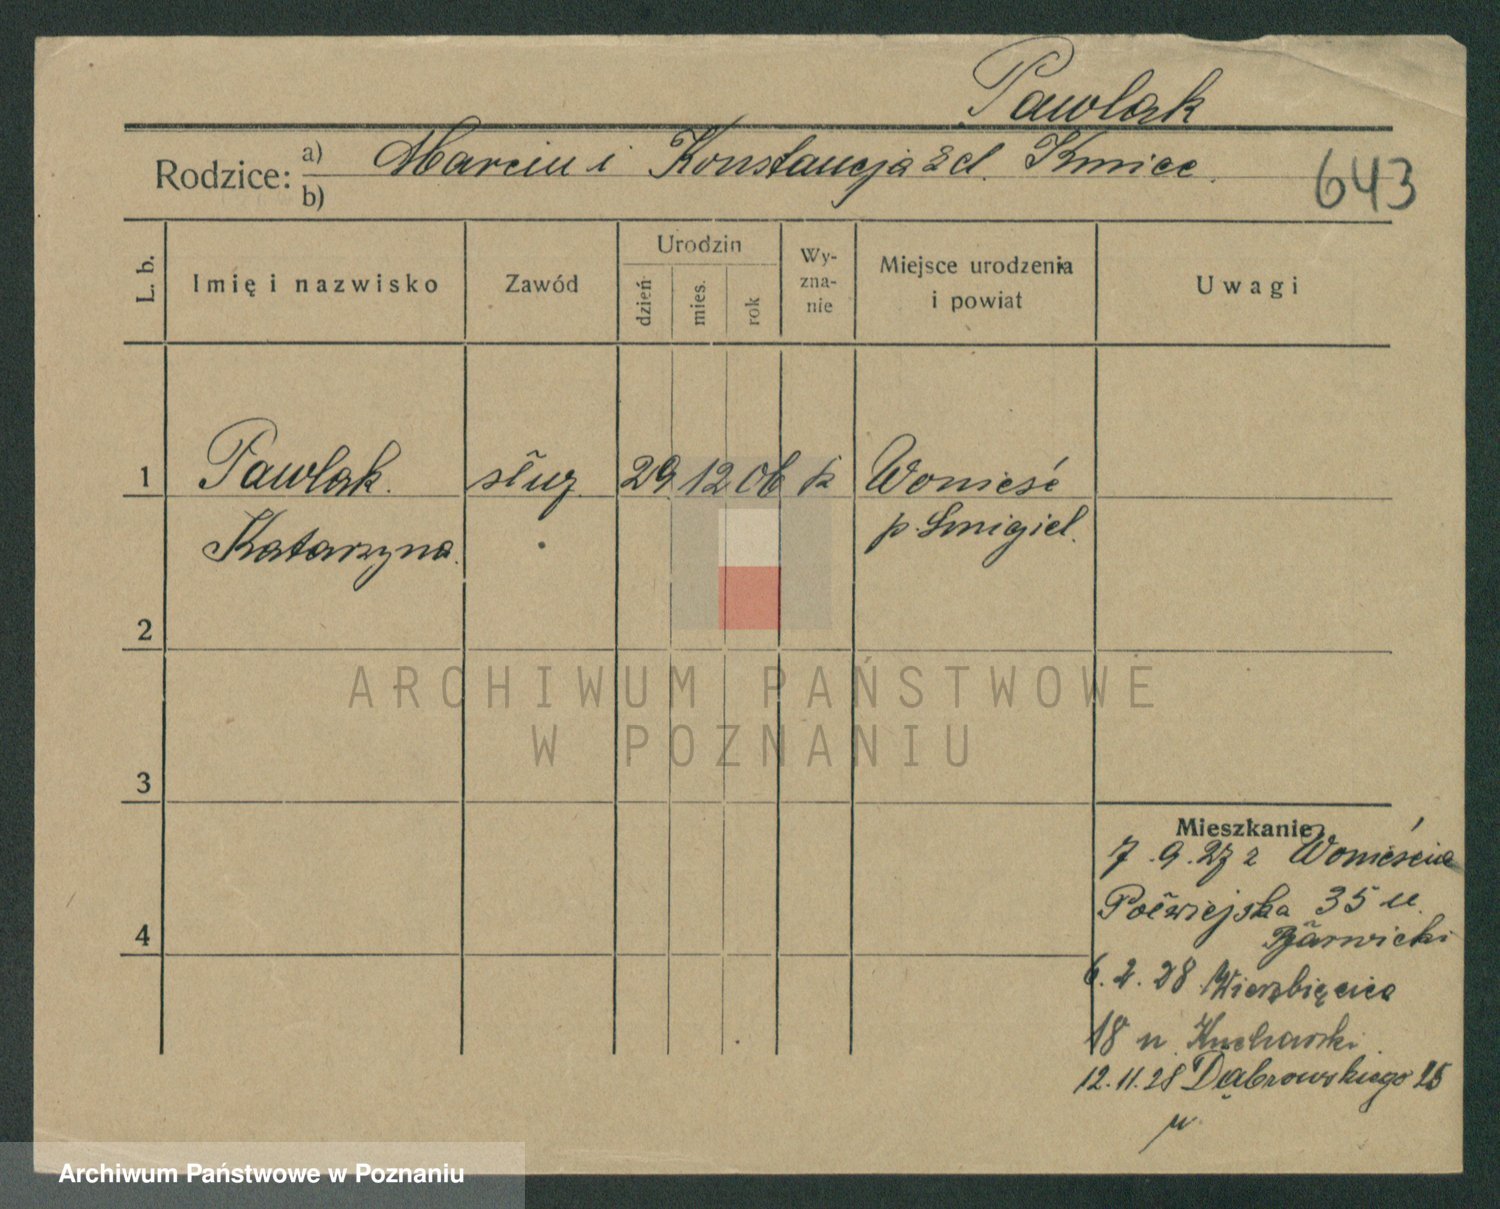 Pawlak
Rodzice: a) Marcin i Konstancja z d. Kmiec.
b)
643
L. b.
Imię i nazwisko
Zawód
Urodzin
dzień
mies.
rok
Wy-
zna-
nie
Miejsce urodzenia
i powiat
Uwagi
1 Pawlak. służ. 29 12 06 k Wonieść
Katarzyna. p. Śmigiel.
2
3
4
Mieszkanie
7.9.27 z Wonieścia
Półwiejska 35 u.
6.2.28 Wierzbięcice
18 u. Kucharski.
12.11.28 Dąbrowskiego 25
u
ARCHIWUM PAŃSTWOWE
W POZNANIU
Archiwum Państwowe w Poznaniu